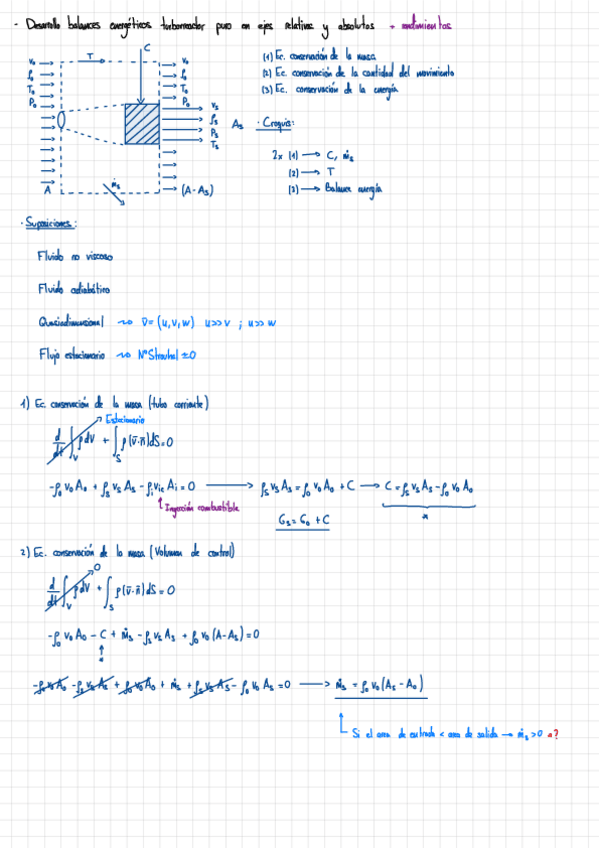 - Desarrollo balances energéticos turborreactor puro en ejes relativos y absolutos + rendimientos
C
T
v₀
ρ₀
T₀
P₀
v₀
ρ₀
T₀
P₀
vₛ
ρₛ
Pₛ
Tₛ
Aₛ
A
ṁₛ
(A-Aₛ)
(1) Ec. conservación de la masa
(2) Ec. conservación de la cantidad del movimiento
(3) Ec. conservación de la energía
· Croquis:
2x (1) → C, ṁₛ
(2) → T
(3) → Balance energía
· Suposiciones:
Fluido no viscoso
Fluido adiabático
Quasidimensional ~> v̄ = (u,v,w) u>>v ; u>>w
Flujo estacionario ~> NºStrouhal ≃0
1) Ec. conservación de la masa (tubo corriente)
Estacionario
d/dt ∫ᵥ ρdV + ∫ₛ ρ(v̄·n̄)dS = 0
-ρ₀ v₀ A₀ + ρₛ vₛ Aₛ - ρᵢ vᵢc Aᵢ = 0 → ρₛ vₛ Aₛ = ρ₀ v₀ A₀ + C → C = ρₛ vₛ Aₛ - ρ₀ v₀ A₀
↑ Inyección combustible
*
Gₛ = G₀ + C
2) Ec. conservación de la masa (Volumen de control)
0
d/dt ∫ᵥ ρdV + ∫ₛ ρ(v̄·n̄)dS = 0
-ρ₀ v₀ A₀ - C + ṁₛ - ρₛ vₛ Aₛ + ρ₀ v₀ (A-Aₛ) = 0
↑
*
-ρ₀ v₀ A₀ - ρₛ vₛ Aₛ + ρ₀ v₀ A₀ + ṁₛ + ρₛ vₛ Aₛ - ρ₀ v₀ Aₛ = 0 → ṁₛ = ρ₀ v₀ (Aₛ - A₀)
Si el area de entrada < area de salida → ṁₛ > 0 ?